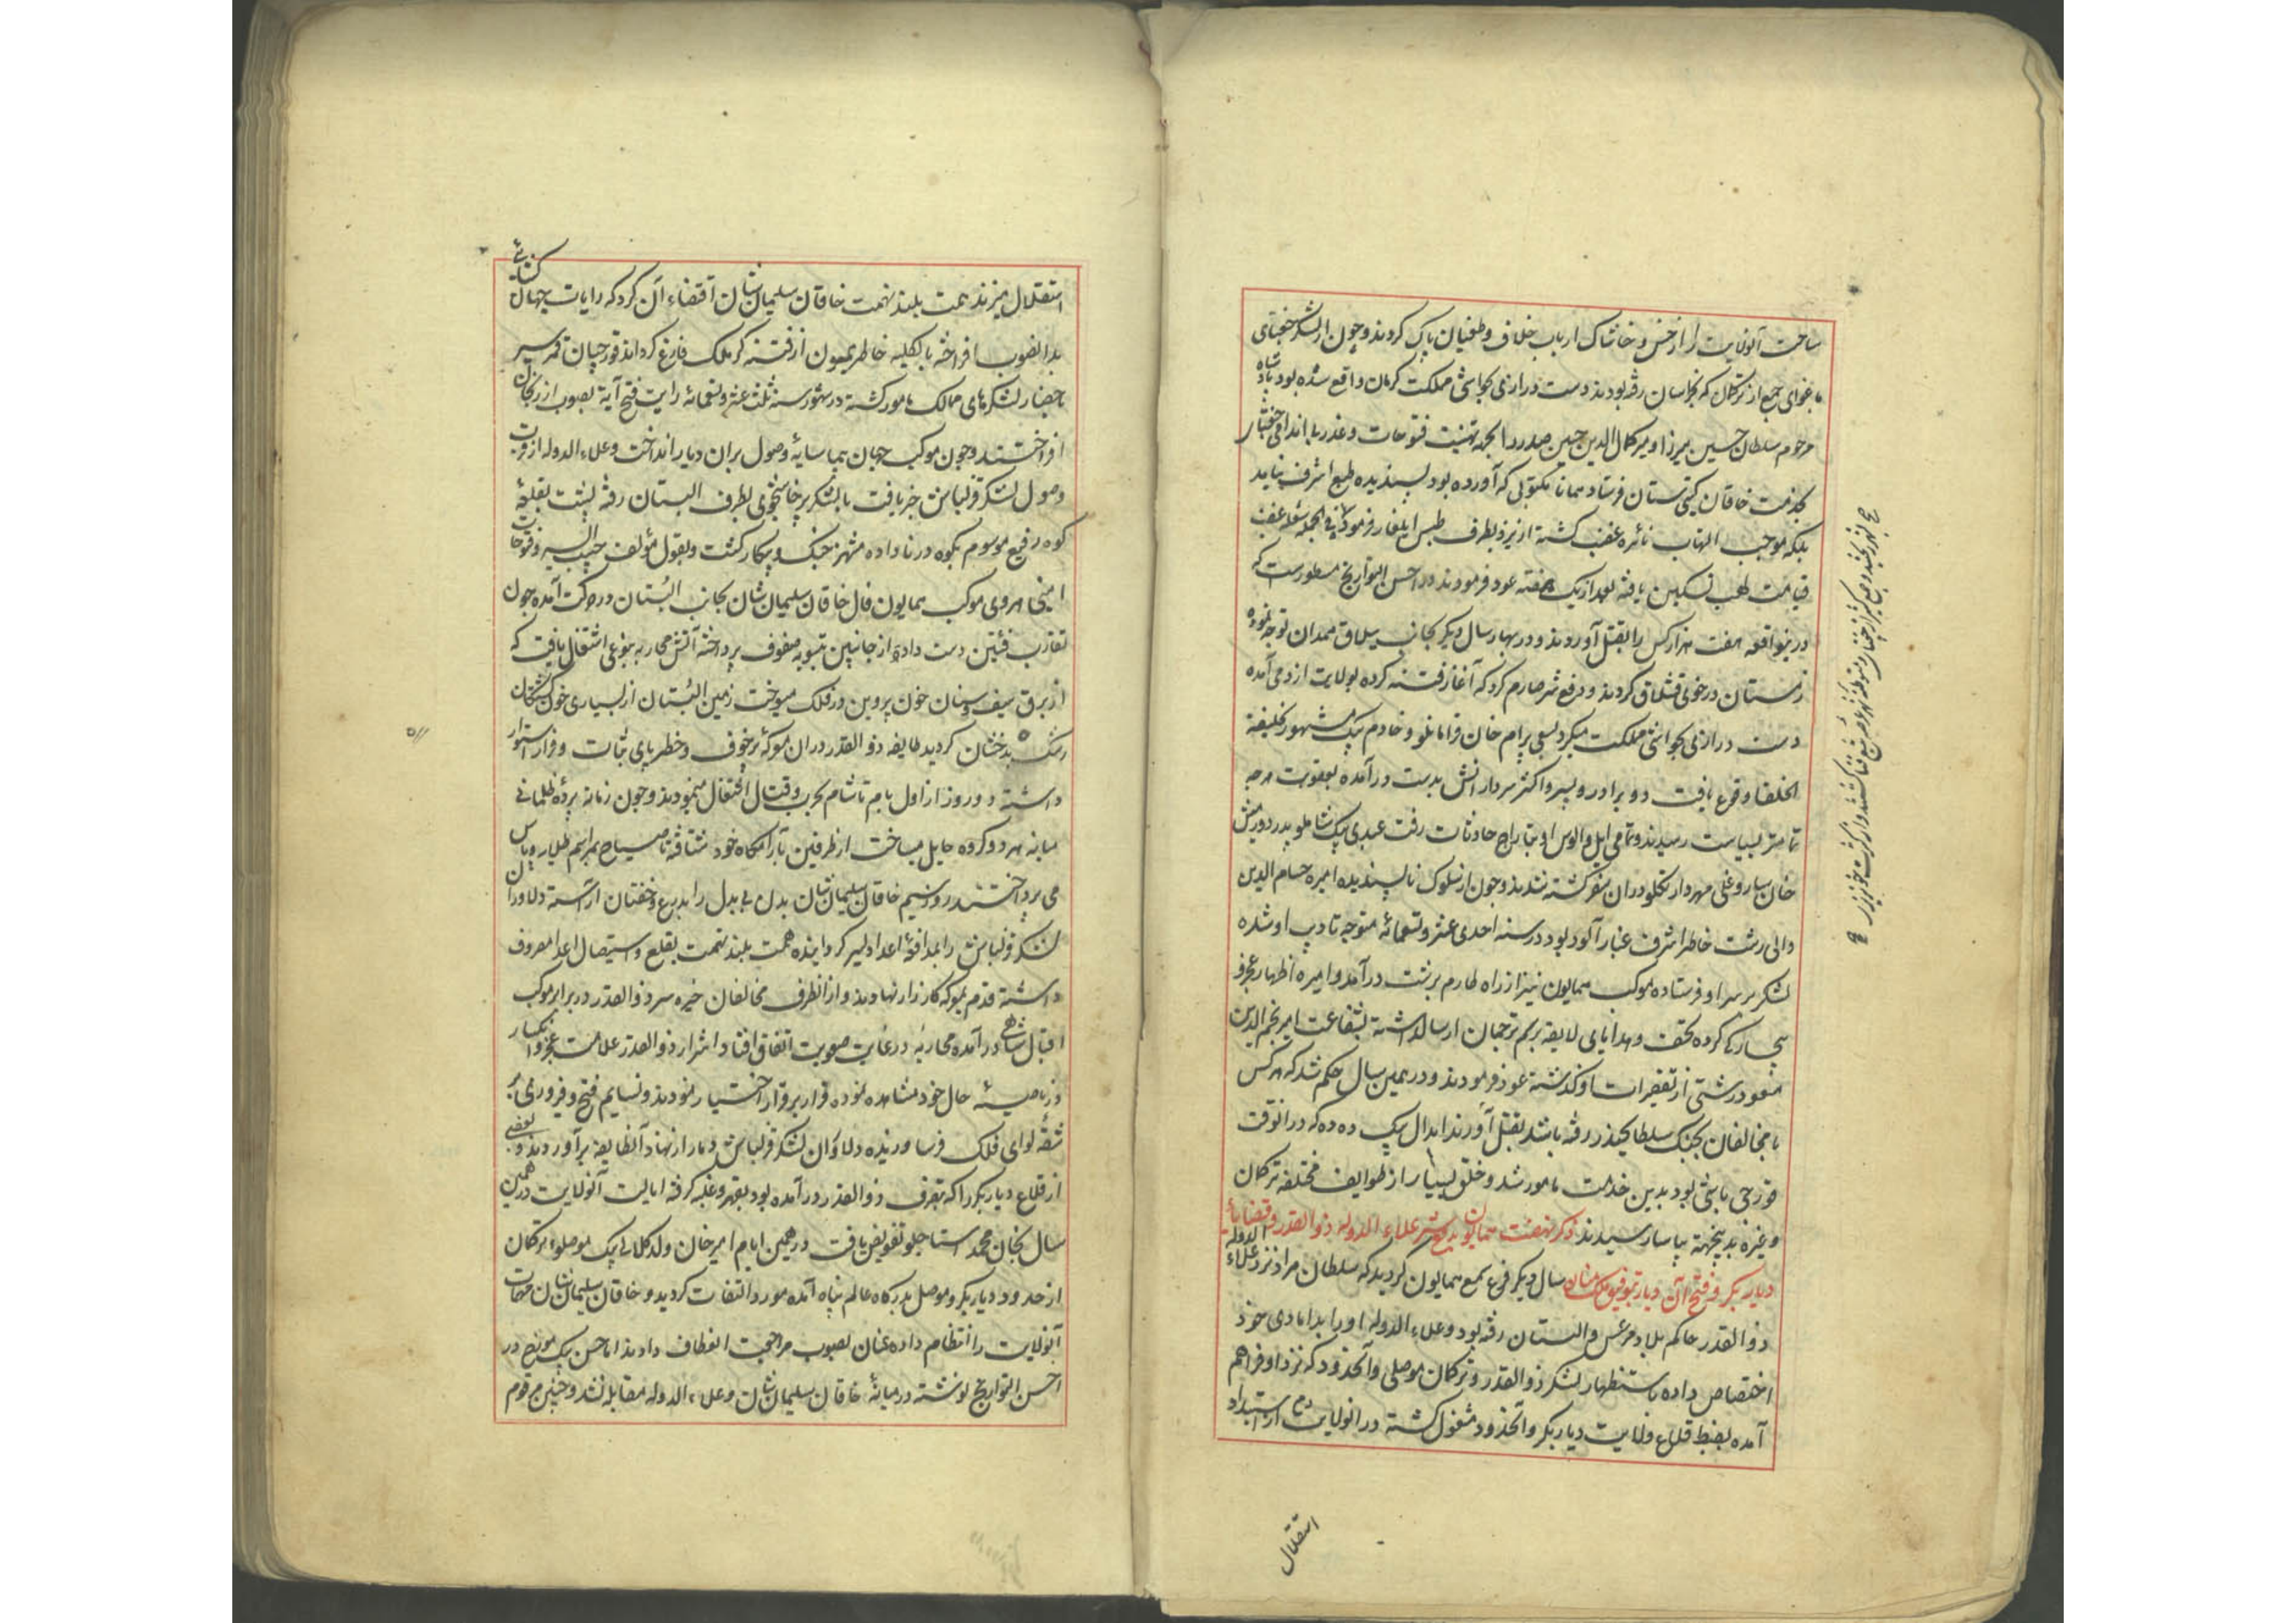 ساحت آنولایت را از خس و خاشاک ارباب خلاف و طغیان پاک کردند و چون از لشکر جغتای
باغوای جمع از ترکمان که بخراسان رفته بودند دست درازی بحواشی مملکت کرمان واقع شده بود پادشاه
مرحوم سلطان حسین میرزا و میر کمال الدین حسین صدر را بجهة تهنیت فتوحات و عذر
بخدمت خاقان گیتی ستان فرستاد همانا مکتوبی که آورده بود پسندیده طبع اشرف نیامد
بلکه موجب التهاب نائره غضب گشته از یزد بطرف طبس ایلغار فرمودند فی الجمله شعله غضب
قیامت لهب تسکین یافته بعد از یک هفته عود فرمودند در احسن التواریخ مسطورست که
درینواقعه هفت هزار کس را بقتل آوردند و در بهار سال دیگر بجانب ییلاق همدان توجه نموده
زمستان در خوی قشلاق کردند و دفع شر صارم کرد که آغاز فتنه کرده بولایت ارومی آمده
دست درازی بحواشی مملکت میکرد بسعی بیرام خان قرامانلو و خادم بیک مشهور بخلیفة
الخلفا وقوع یافت دو برادر و پسر و اکثر سردارانش بدست درآمده بعقوبت هرچه
تمامتر بسیاست رسیدند و تمامی ایل و الوس او بتاراج حادثات رفت عبدی بیک شاملو پدر دورمش
خان و ساروعلی مهردار تکلو در ان سفر کشته شدند و چون از سلوک ناپسندیده امیره حسام الدین
والی رشت خاطر اشرف غبار آلود بود در سنه احدی عشر و تسعمائه متوجه تادیب او شده
لشکر بر سر او فرستاده موکب همایون نیز از راه طارم برشت درآمد و امیره اظهار عجز و
بیچارگی کرده تحف و هدایای لایقه برسم ترجمان ارسال داشته بشفاعت امیر نجم الدین
مسعود رشتی از تقصیرات او گذشته عود فرمودند و در همین سال حکم شد که هر کس
با مخالفان بجنک سلطان حیدر رفته باشد بقتل آورند ابدال بیک دده که در انوقت
قورچی باشی بود بدین خدمت مامور شد و خلق بسیار از طوایف مختلفه ترکمان
و غیره بدینجهة بیاسا رسیدند ذکر نهضت همایون بدفع شر علاء الدوله ذوالقدر و قضایای
دیار بکر و فتح آن دیار بتوفیق ملک منان سال دیگر فرع سمع همایون گردید که سلطان مراد نزد علاء الدوله
ذوالقدر حاکم بلاد مرعش و البستان رفته بود و علاء الدوله او را بدامادی خود
اختصاص داده باستظهار لشکر ذوالقدر و ترکمان موصلی و آنحدود که نزد او فراهم
آمده بضبط قلاع ولایت دیار بکر و آنحدود مشغول گشته در انولایت دم از استبداد
استقلال
استقلال میزند همت بلند نهمت خاقان سلیمان شان اقتضاء آن کرد که رایات جهان گشائی
بدانصوب افراخته بالکلیه خاطر همیون از فتنه گر ملک فارغ گرداند قورچیان قمر سیر
باحضار لشکرهای ممالک مامور گشته در شهور سنه ثلث عشر و تسعمائه رایت فتح آیة بصوب ارزنجان
افراختند و چون موکب جهان پیما سایهٔ وصول بران دیار انداخت و علاء الدوله از قرب
وصول لشکر قزلباش خبر یافت با لشکر پرخاشجوی بطرف البستان رفته پشت بقلعهٔ
کوه رفیع موسوم بکوه درنا داده منتهز جنک و پیکار گشت و بقول مؤلف حبیب السیر و فتوحات
امینی هروی موکب همایون فال خاقان سلیمان شان بجانب البستان در حرکت آمده چون
تقارب فئتین دست داده از جانبین تسویه صفوف پرداخته آتش محاربه بنوعی اشتعال یافت که
از برق سیف و سنان خون پروین در فلک میسوخت زمین البستان از بسیاری خون کشتگان
رشک بدخشان گردید طایفه ذوالقدر در ان معرکهٔ پرخوف و خطر پای ثبات و قرار استوار
داشته دو روز از اول بام تا شام بحرب و قتال اشتغال مینمودند و چون زمانه پردهٔ ظلمانی
میانه هر دو گروه حایل میساخت از طرفین بآرامگاه خود شتافته تا صباح بمراسم طلایه و پاس
می پرداختند روز سیم خاقان سلیمان شان بدن بی بدل را بدرع و خفتان آراسته دلاوران
لشکر قزلباش را بمدافعهٔ اعدا دلیر گردانیده همت بلند نهمت بقلع و استیصال اعدا معروف
داشته قدم بمعرکه کارزار نهادند و از انطرف مخالفان خیره سر ذوالقدر در برابر موکب
اقبال شاهی درآمده محاربهٔ در غایت صعوبت اتفاق افتاد اشرار ذوالقدر علامت عجز و انکسار
در ناصیهٔ حال خود مشاهده نموده قرار بر فرار اختیار نمودند و نسایم فتح و فیروزی بر
شقهٔ لوای فلک فرسا وزیده دلاوران لشکر قزلباش دمار از نهاد آنطایفه برآوردند و بعضی
از قلاع دیاربکر را که بتصرف ذوالقدر درآمده بود بقهر و غلبه گرفته ایالت آنولایت در همین
سال بخان محمد استاجلو تفویض یافت در همین ایام امیرخان ولد گلابی بیک موصلوء ترکمان
از حدود دیاربکر و موصل بدرگاه عالم پناه آمده مورد التفات گردید و خاقان سلیمان شان مهمات
آنولایت را انتظام داده عنان بصوب مراجعت انعطاف دادند اما حسن بیک مورخ در
احسن التواریخ نوشته در میانهٔ خاقان سلیمان شان و علاء الدوله مقابله نشد و چنین مرقوم